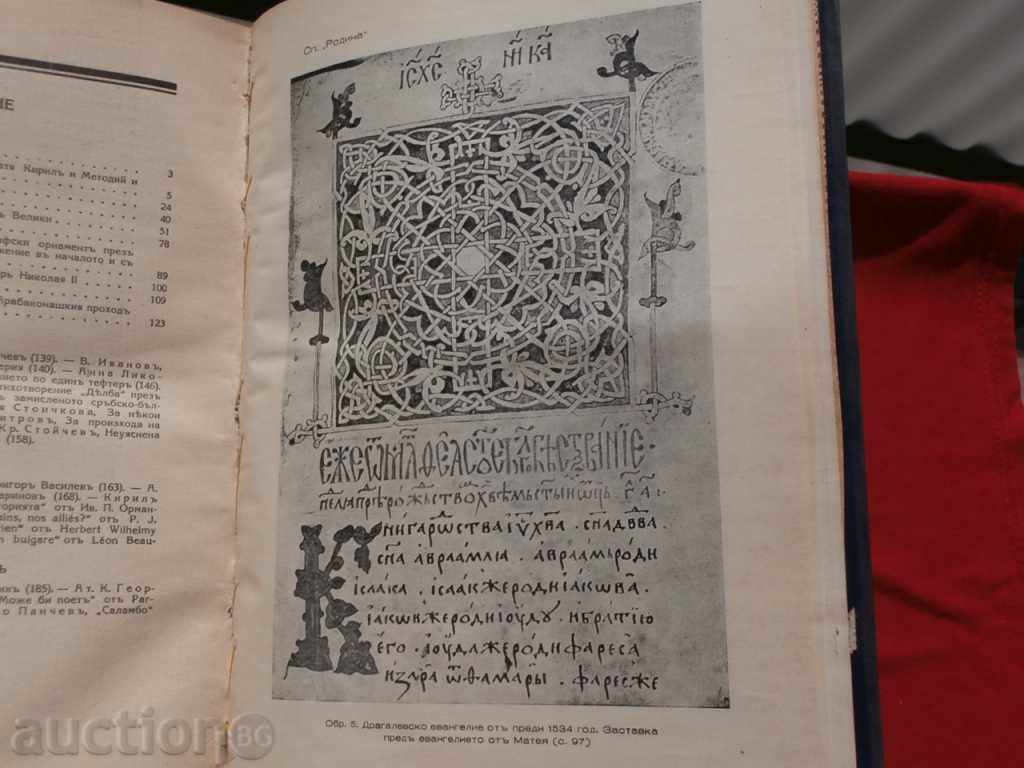 ИЕ
3
Кирилъ и Методий и
5
24
40
ъ Велики
51
78
фски орнаментъ презъ
жение въ началото и съ
89
рь Николая II
100
109
Арабаконашкия проходъ
123
чевъ (139). — В. Ивановъ,
ерия (140). — Анна Лико-
нието по единъ тефтеръ (146).
тихотворение „Дѣлба“ презъ
ъ замисленото сръбско-бъл-
я Стоичкова, За нѣкои
итровъ, За произхода на
Кр. Стойчевъ, Неуяснена
(158).
ригоръ Василевъ (163). — А.
ариновъ (168). — Кирилъ
торията“ отъ Ив. П. Орман-
ains, nos alliés?“ отъ P. J.
rien“ отъ Herbert Wilhelmy
n bulgare“ отъ Léon Beau-
Ъ
икъ (185). — Ат. К. Геор-
Може би поетъ“ отъ Par-
о Панчевъ, „Саламбо“
Сп. „Родина“
ІС ХС НИ КА
КНИГА РѠСТВА ІУ ХВА . СНА ДВВА
СНА АВРААМЛІА . АВРААМЬ РОДИ
ІСААКА . ІСААК ЖЕ РОДИ ІАКѠВА
ІАКѠВ ЖЕ РОДИ ІОУДУ И БРАТІЮ
ЕГО . ІОУДА ЖЕ РОДИ ФАРЕСА
И ЗАРА Ѿ ѲАМАРЫ . ФАРЕС ЖЕ
Обр. 5. Драгалевско евангелие отъ преди 1534 год. Заставка
предъ евангелието отъ Матея (с. 97)
auction BG